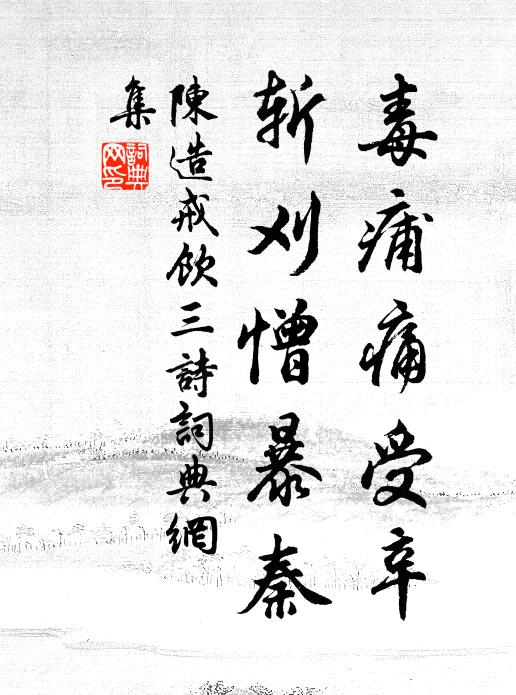 毒痡痛受辛
斬刈憎暴秦
陳造戒飲三詩詞典網
集
詞典网印